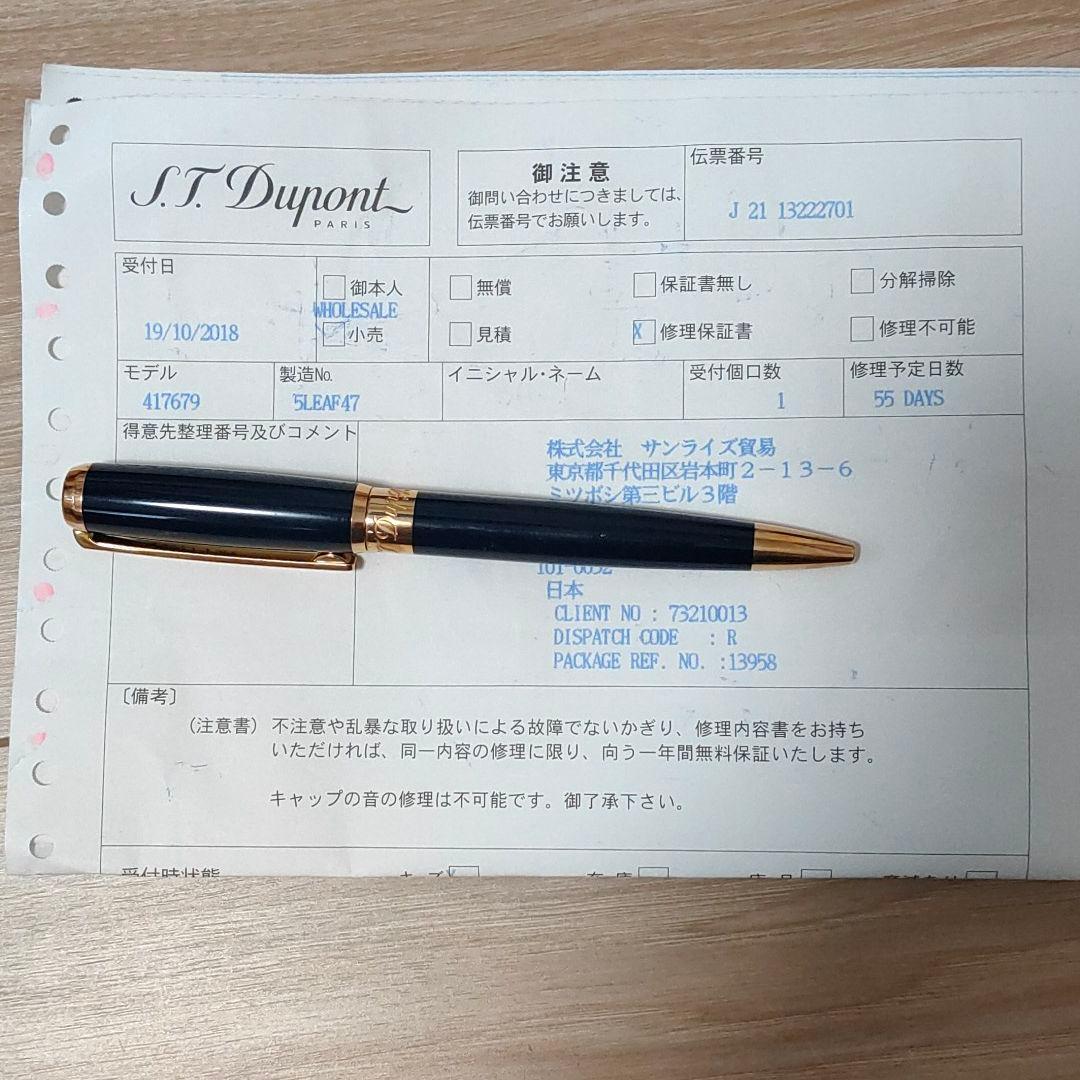 S.T. Dupont
PARIS
御注意
御問い合わせにつきましては、
伝票番号でお願いします。
伝票番号
J 21 13222701
受付日
19/10/2018
御本人
WHOLESALE
小売
無償
見積
保証書無し
X 修理保証書
分解掃除
修理不可能
モデル
417679
製造No.
5LEAF47
イニシャル・ネーム
受付個口数
1
修理予定日数
55 DAYS
得意先整理番号及びコメント
株式会社 サンライズ貿易
東京都千代田区岩本町2-13-6
ミツボシ第三ビル3階
101-0032
日本
CLIENT NO : 73210013
DISPATCH CODE : R
PACKAGE REF. NO. :13958
〔備考〕
(注意書) 不注意や乱暴な取り扱いによる故障でないかぎり、修理内容書をお持ち
いただければ、同一内容の修理に限り、向う一年間無料保証いたします。
キャップの音の修理は不可能です。御了承下さい。
受付時状態